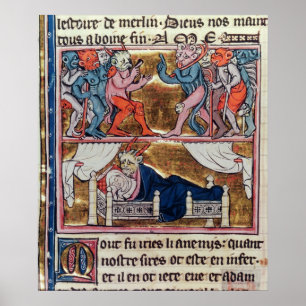 lestoire de merlin. Dieus nos maine
tous a boine fin. A M E
Mout fu iries li anemis. quant
nostre sires ot este en infer
et il en ot iete eue et adam